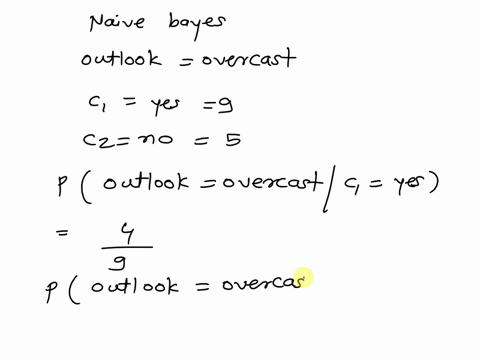 Naive bayes
outlook = overcast
c₁ = yes = 9
c2 = no = 5
P( outlook = overcast / c₁ = yes )
= 4/9
P( outlook = overcas